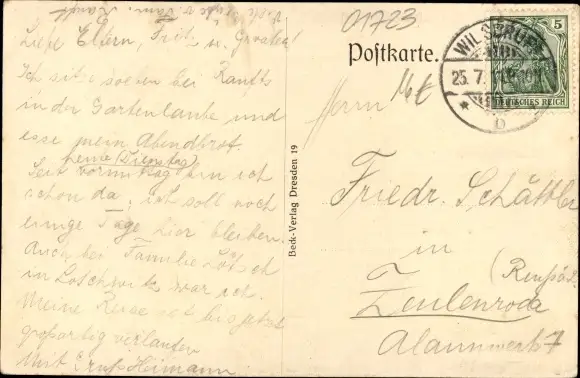 01723
Postkarte.
WILSDRUFF
25. 7. 11
b
5
DEUTSCHES REICH
Herrn
Friedr. Schättler
in
(Reuß ä. L.
Zeulenroda
Alaunwerk 7
Beck-Verlag Dresden 19
Liebe Eltern, Fritz u. Großeltern!
Ich sitze soeben bei Ranfts
in der Gartenlaube und
esse mein Abendbrot.
heute (Dienstag)
Seit vormittag bin ich
schon da, ich soll noch
einige Tage hier bleiben.
Auch bei Familie Lötsch
in Loschwitz war ich.
Meine Reise ist bis jetzt
großartig verlaufen
Mit Gruß Heimann